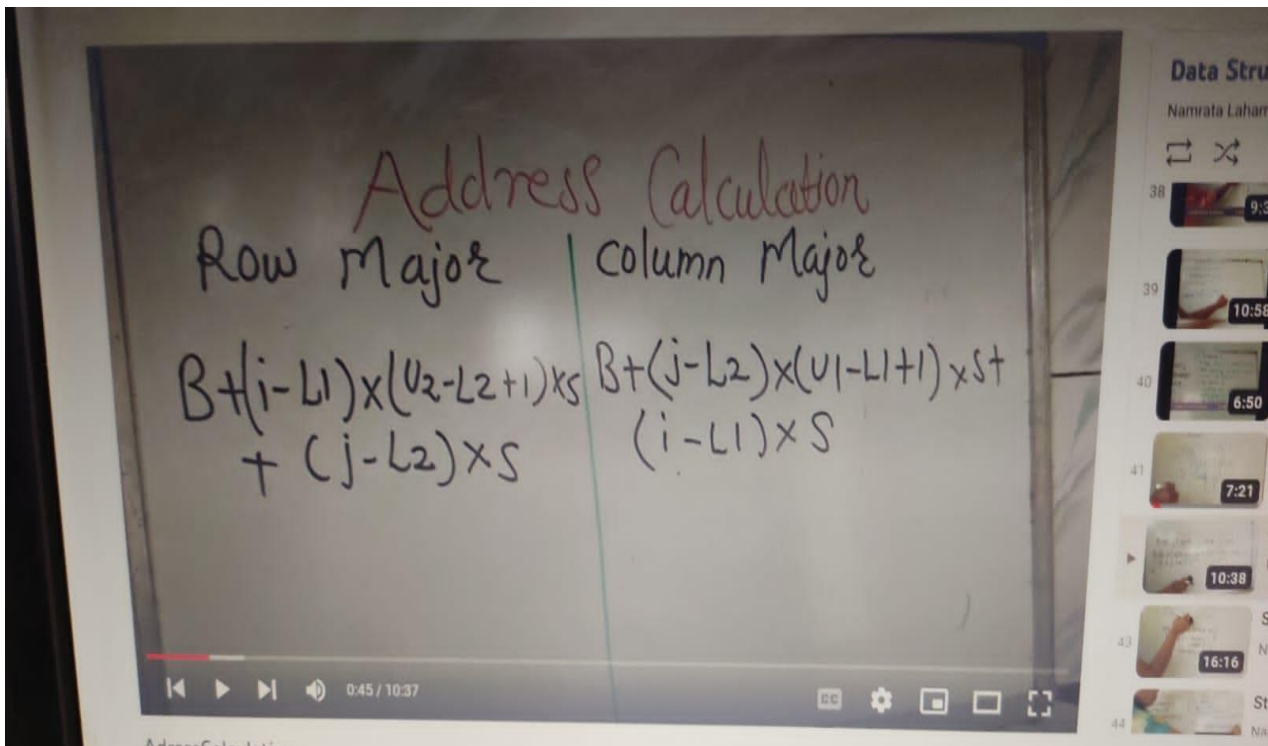 Address Calculation
Row Major
B+(i-L1)×(U2-L2+1)×S
+ (j-L2)×S
Column Major
B+(j-L2)×(U1-L1+1)×S+
(i-L1)×S
0:45 / 10:37
CC
Data Stru
Namrata Laham
38
9:3
39
10:58
40
6:50
41
7:21
10:38
43
16:16
S
N
44
St
Na